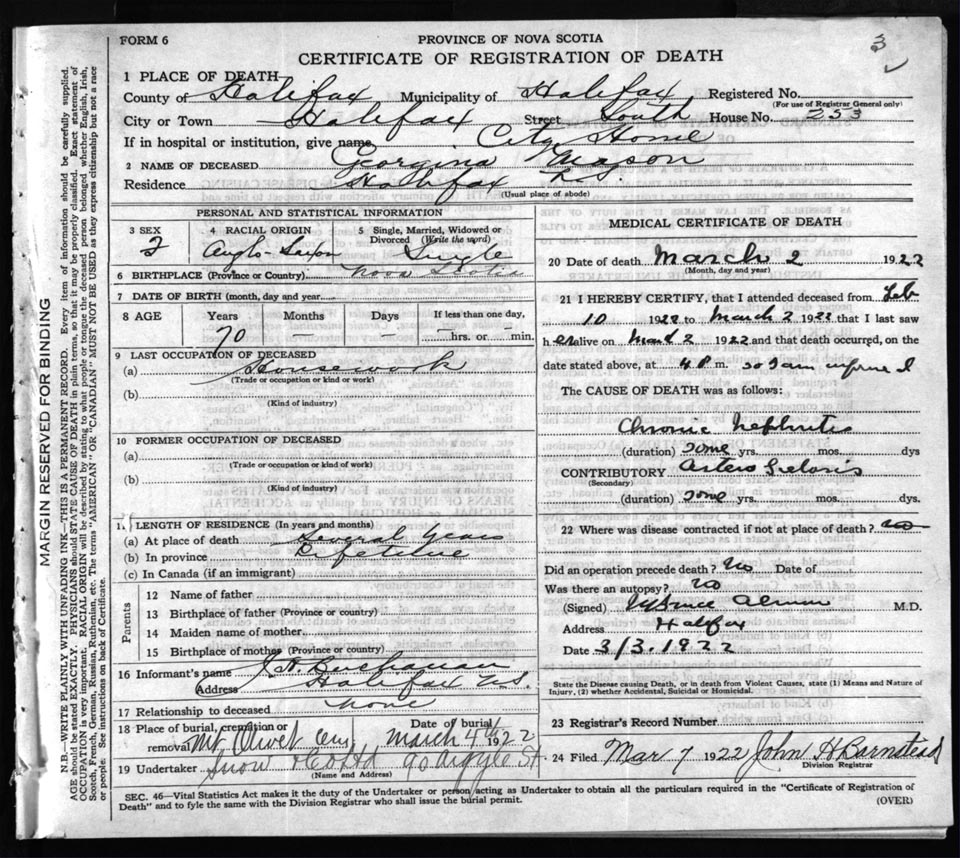 FORM 6
PROVINCE OF NOVA SCOTIA
3
CERTIFICATE OF REGISTRATION OF DEATH
1 PLACE OF DEATH
County of Halifax Municipality of Halifax Registered No.
(For use of Registrar General only)
City or Town Halifax Street South House No. 253
If in hospital or institution, give name City Home
2 NAME OF DECEASED Georgina Mason
Residence Halifax N.S.
(Usual place of abode)
PERSONAL AND STATISTICAL INFORMATION
3 SEX 4 RACIAL ORIGIN 5 Single, Married, Widowed or Divorced (Write the word)
Anglo-Saxon Single
6 BIRTHPLACE (Province or Country) Nova Scotia
7 DATE OF BIRTH (month, day and year)
8 AGE Years Months Days If less than one day,
70 hrs. or min.
9 LAST OCCUPATION OF DECEASED
(a) Housework
(Trade or occupation or kind or work)
(b)
(Kind of industry)
10 FORMER OCCUPATION OF DECEASED
(a)
(Trade or occupation or kind of work)
(b)
(Kind of industry)
11 LENGTH OF RESIDENCE (In years and months)
(a) At place of death Several Years
(b) In province Lifetime
(c) In Canada (if an immigrant)
Parents
12 Name of father
13 Birthplace of father (Province or country)
14 Maiden name of mother
15 Birthplace of mother (Province or country)
16 Informant's name Buchanan
Address Halifax N.S.
17 Relationship to deceased None
18 Place of burial, cremation or removal Mt Olivet Cem Date of burial March 4th 1922
19 Undertaker Snow & Co Ltd 90 Argyle St.
(Name and Address)
MEDICAL CERTIFICATE OF DEATH
20 Date of death March 2 1922
(Month, day and year)
21 I HEREBY CERTIFY, that I attended deceased from Feb
10 1922 to March 2 1922 that I last saw
her alive on March 2 1922 and that death occurred, on
date stated above, at 4 P. m. so I am informed
The CAUSE OF DEATH was as follows:
Chronic Nephritis
(duration) some yrs. mos. dys
CONTRIBUTORY Arterio Sclerosis
(Secondary)
(duration) some yrs. mos. dys.
22 Where was disease contracted if not at place of death? no
Did an operation precede death? No Date of
Was there an autopsy? no
(Signed) Bruce Almon M.D.
Address Halifax
Date 3/3.1922
State the Disease causing Death, or in death from Violent Causes, state (1) Means and Nature of Injury, (2) whether Accidental, Suicidal or Homicidal.
23 Registrar's Record Number
24 Filed Mar 7 1922 John H Barnstead
Division Registrar
SEC. 46—Vital Statistics Act makes it the duty of the Undertaker or person acting as Undertaker to obtain all the particulars required in the "Certificate of Registration of
Death" and to fyle the same with the Division Registrar who shall issue the burial permit. (OVER)
MARGIN RESERVED FOR BINDING
N.B.—WRITE PLAINLY WITH UNFADING INK—THIS IS A PERMANENT RECORD. Every item of information should be carefully supplied.
AGE should be stated EXACTLY. PHYSICIANS should STATE CAUSE OF DEATH in plain terms, so that it may be properly classified. Exact statement of
OCCUPATION is very important. RACIAL ORIGIN will be described by stating to what people or tongue the deceased person belonged whether English, Irish,
Scotch, French, German, Russian, Ruthenian, etc. The terms "AMERICAN" OR "CANADIAN" MUST NOT BE USED as they express citizenship but not a race
or people. See instructions on back of Certificate.